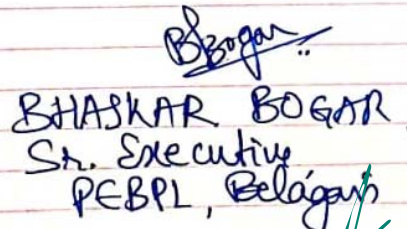 BBogar
BHASKAR BOGAR
Sr. Executive
PEBPL, Belagavi